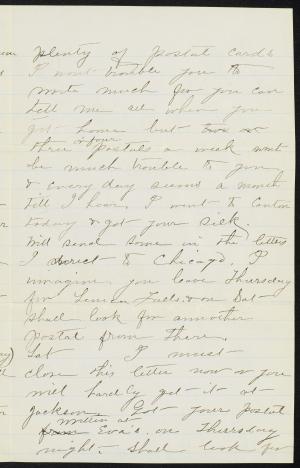 plenty of postal cards
I wont trouble you to
write much for you can
tell me all when you
get home but two or
three & four postals a week wont
be much trouble to you
& every day seems a month
till I hear. I went to Canton
today & got your silk.
Will send some in the letter
I direct to Chicago. I
imagine you leave Thursday
for Falls & on Sat
shall look for another
postal from there.
Sat I must
close this letter now or you
will hardly get it at
Jackson. Got your postal
written at
from Eva's on Thursday
night. Shall look for